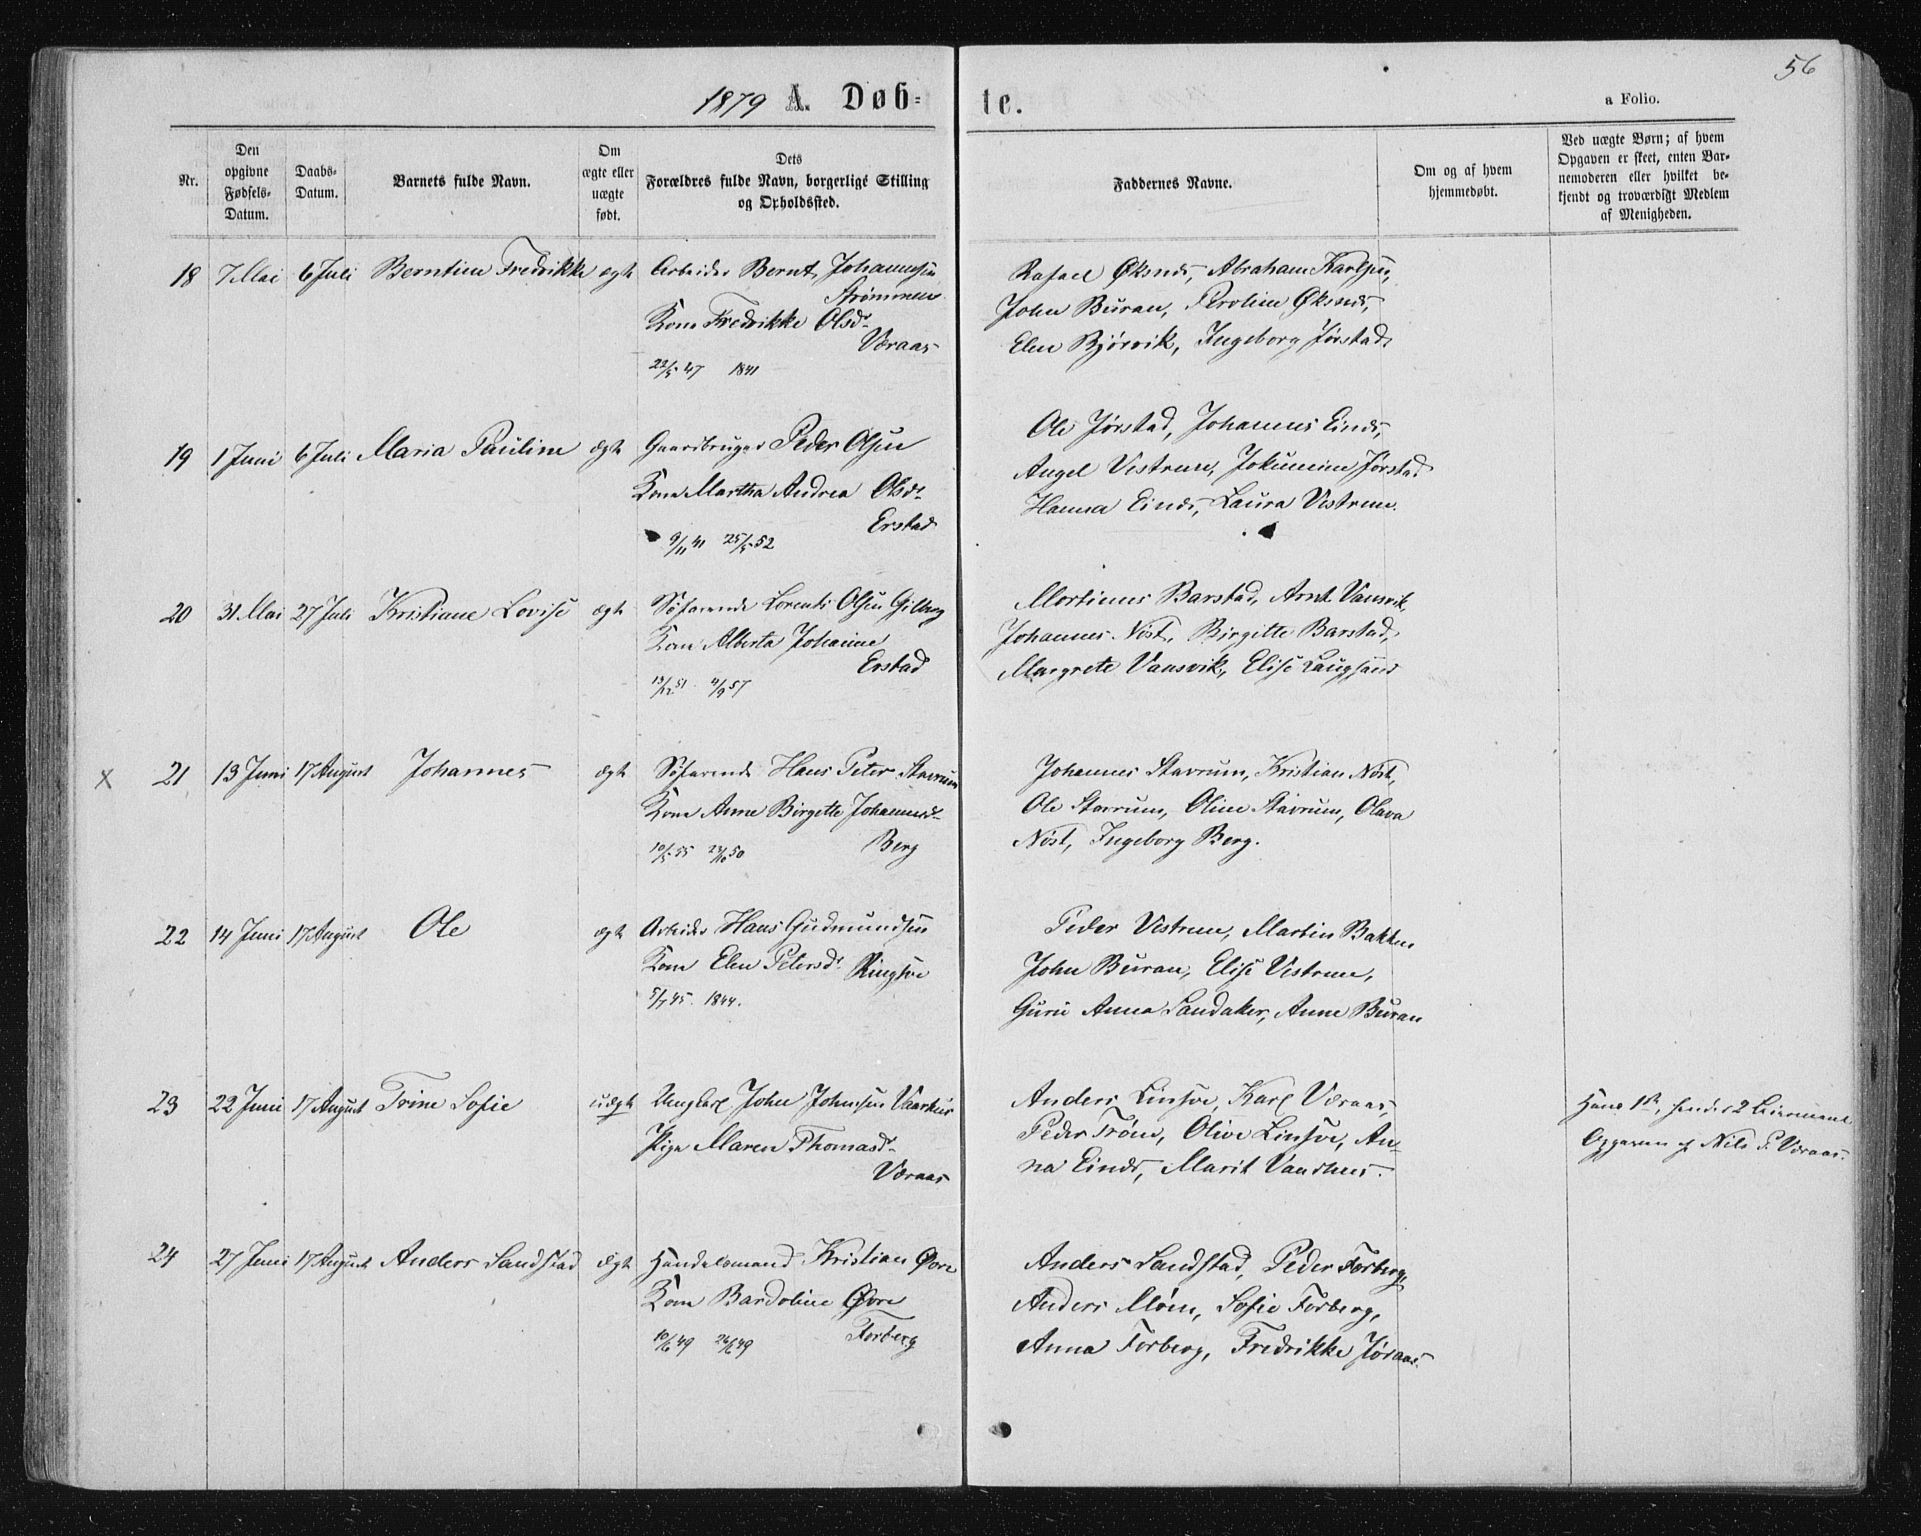 56
1879 A. Døbte.
a Folio.
Nr.
Den opgivne Fødsels-Datum.
Daabs-Datum.
Barnets fulde Navn.
Om ægte eller uægte født.
Dets Forældres fulde Navn, borgerlige Stilling og Opholdssted.
Faddernes Navne.
Om og af hvem hjemmedøbt.
Ved uægte Børn; af hvem Opgaven er skeet, enten Barnemoderen eller hvilket bekjendt og troværdigt Medlem af Menigheden.
18 7 Mai 6 Juli Berntine Fredrikke ægte Arbeider Bernt Johannesen
Strømmen
Kone Fredrikke Olsdr
Væraas
22/5 47 1841
Rafael Øksnes, Abraham Karlsen,
John Buran, Feroline Øksnes,
Elen Bjørvik, Ingeborg Jørstad
19 1 Juni 6 Juli Maria Pauline ægte Gaardbruger Peder Olsen
Kone Martha Andrea Olsdr
Erstad
9/11 41 25/5 52
Ole Jørstad, Johannes Eines,
Angel Vestrum, Jokumine Jørstad
Hanna Eines, Laura Vestrum.
20 31 Mai 27 Juli Kristiane Lovise ægte Søfarende Lorents Olsen Gilberg
Kone Alberta Johanne
Erstad
13/12 51 11/9 57
Mortinus Barstad, Arnt Vansvik,
Johannes Nöst, Birgitte Barstad,
Margrete Vansvik, Elise Laugsand
x 21 13 Juni 17 August Johannes ægte Søfarende Hans Peter Stavrum
Kone Anne Birgette Johannesdr
Berg
10/5 55 23/10 50
Johannes Stavrum, Kristian Nöst,
Ole Stavrum, Oline Stavrum, Olava
Nöst, Ingeborg Berg.
22 14 Juni 17 August Ole ægte Arbeider Hans Gudmundsen
Kone Elen Petersdr Ringsve
5/7 45. 1844.
Peder Vestrum, Martin Bakken
John Buran, Elise Vestrum,
Guru Anna Sandaker, Anne Buran
23 22 Juni 17 August Trine Sofie uægte Ungkarl John Johnsen Vaarhus
Pige Maren Thomasdr
Væraas
Anders Linsve, Karl Væraas,
Peder Trøen, Olive Linsve, An-
na Eines, Marit Vaarhus.
Hans 1ste, hendes 2 Leiermaal
Opgaven af Nils P. Væraas.
24 27 Juni 17 August Anders Sandstad ægte Handelsmand Kristian Øvre
Kone Bardoline Øvre
Forberg
10/6 49 26/6 49
Anders Sandstad, Peder Forberg,
Anders Moen, Sofie Forberg,
Anna Forberg, Fredrikke Jøraas